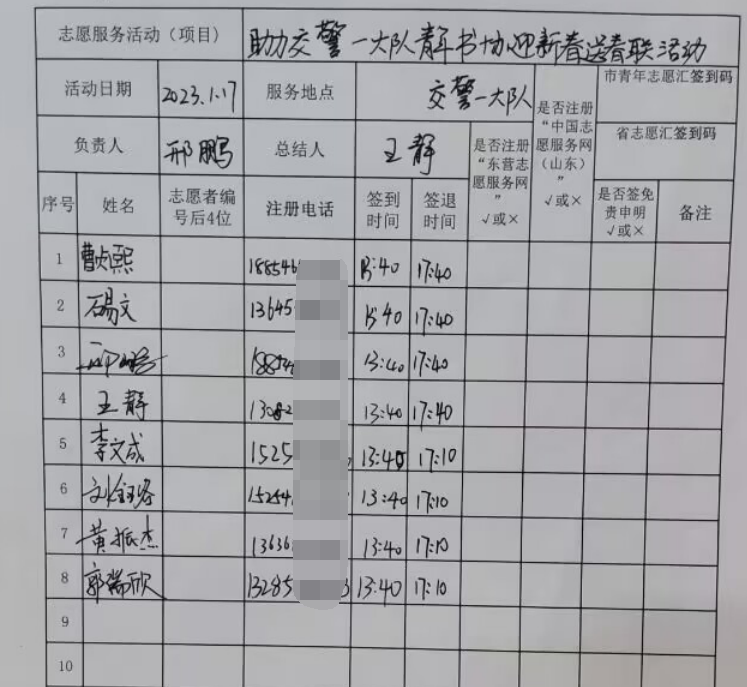 志愿服务活动（项目） 助力交警一大队青年书协迎新春送春联活动
活动日期 2023.1.17 服务地点 交警一大队 是否注册“中国志愿服务网（山东）”√或× 市青年志愿汇签到码
负责人 邢鹏 总结人 王静 是否注册“东营志愿服务网”√或× 省志愿汇签到码
序号 姓名 志愿者编号后4位 注册电话 签到时间 签退时间 是否签免责申明√或× 备注
1 曹贞熙 188546 13:40 17:40
2 砀文 13645 13:40 17:40
3 13:40 17:40
4 王静 13:40 17:40
5 李文成 1525 13:40 17:10
6 15254 13:40 17:10
7 黄振杰 13636 13:40 17:10
8 郭瑞欣 13285 3 13:40 17:10
9
10